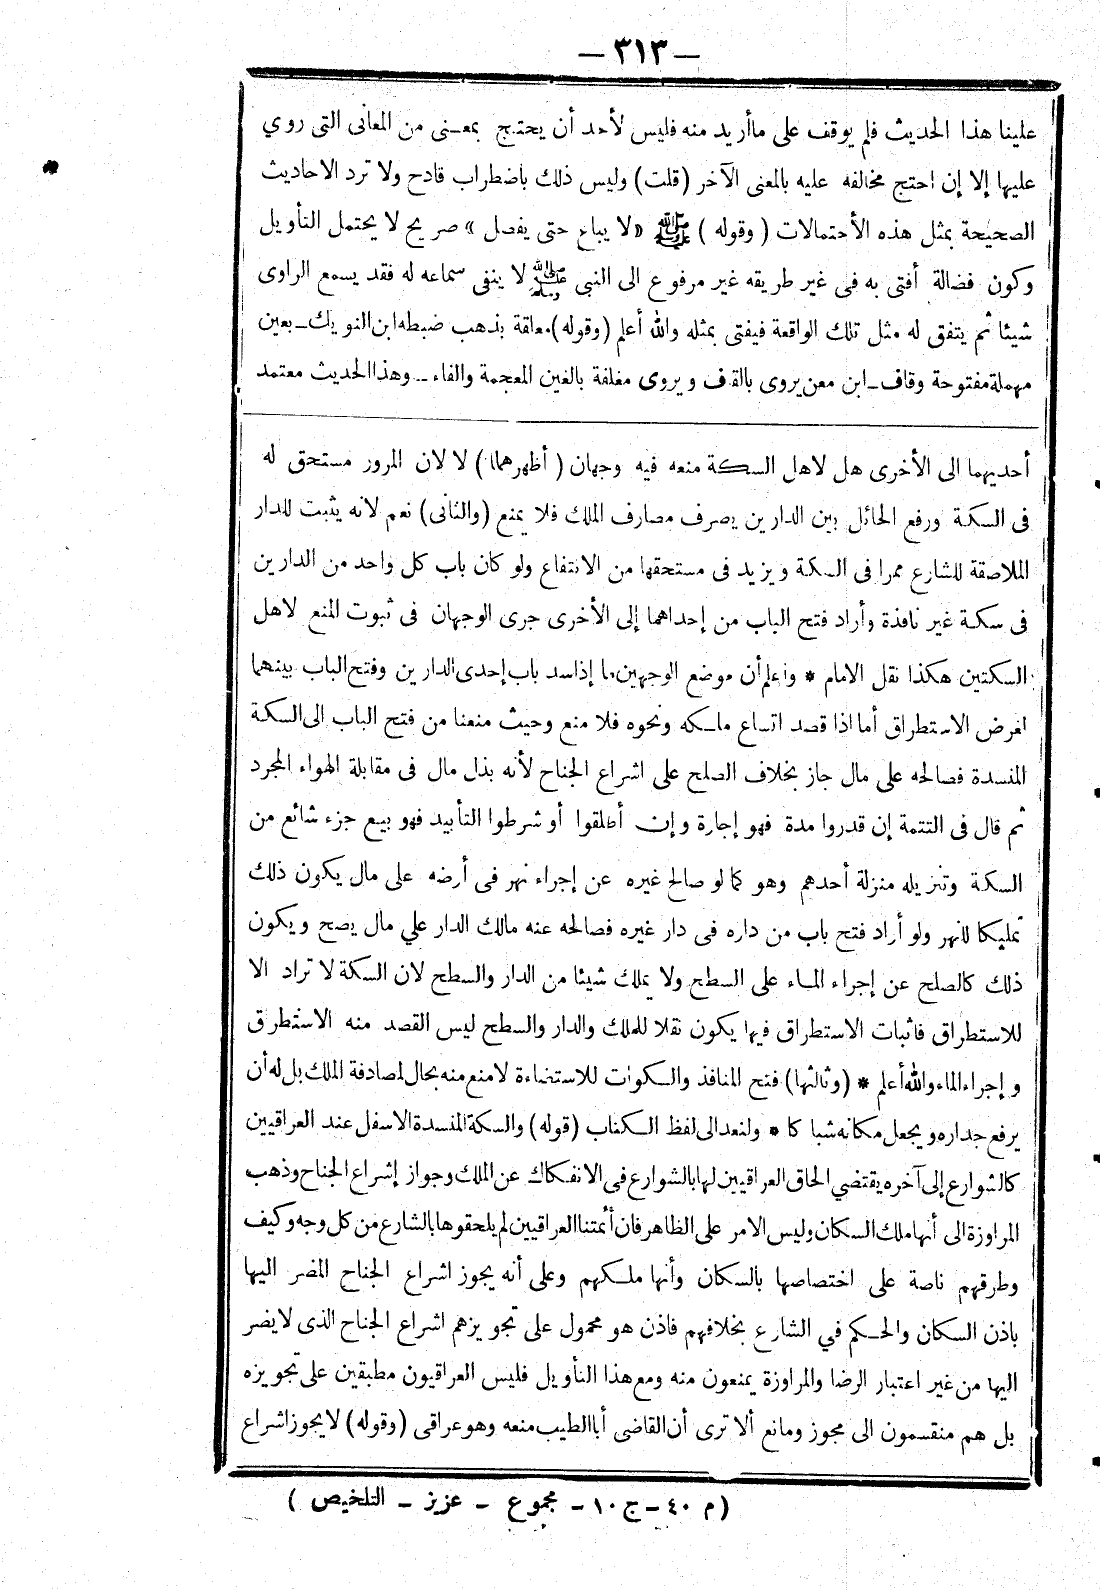 — ٣١٣ —
علينا هذا الحديث فلم يوقف على ماأريد منه فليس لأحد أن يحتج بمعنى من المعانى التى روي
عليها إلا إن احتج مخالفه عليه بالمعنى الآخر (قلت) وليس ذلك باضطراب قادح ولا ترد الاحاديث
الصحيحة بمثل هذه الأحتمالات (وقوله) ﷺ «لا يباع حتى يفصل» صريح لا يحتمل التأويل
وكون فضالة أفتى به فى غير طريقه غير مرفوع الى النبى ﷺ لا ينفى سماعه له فقد يسمع الراوى
شيئا ثم يتفق له مثل تلك الواقعة فيفتى بمثله والله أعلم (وقوله) معلقة بذهب ضبطه ابن النويك ــ بعين
مهملة مفتوحة وقاف ــ ابن معن يروى بالقاف ويروى مغلفة بالغين المعجمة والفاء ــ وهذا الحديث معتمد
أحديهما الى الأخرى هل لاهل السكة منعه فيه وجهان (أظهرهما) لا لان المرور مستحق له
فى السكة ورفع الحائل بين الدارين يصرف مصارف الملك فلا يمنع (والثانى) نعم لانه يثبت للدار
الملاصقة للشارع ممرا فى السكة ويزيد فى مستحقها من الانتفاع ولو كان باب كل واحد من الدارين
فى سكة غير نافذة وأراد فتح الباب من إحداهما إلى الأخرى جرى الوجهان فى ثبوت المنع لاهل
السكتين هكذا نقل الامام * واعلم أن موضع الوجهين ما إذا سد باب إحدى الدارين وفتح الباب بينهما
لغرض الاستطراق أما اذا قصد اتساع ملكه ونحوه فلا منع وحيث منعنا من فتح الباب الى السكة
المنسدة فصالحه على مال جاز بخلاف الصلح على اشراع الجناح لأنه بذل مال فى مقابلة الهواء المجرد
ثم قال فى التتمة إن قدروا مدة فهو إجارة وإن أطلقوا أو شرطوا التأبيد فهو بيع جزء شائع من
السكة وتنزيله منزلة أحدهم وهو كما لو صالح غيره عن إجراء نهر فى أرضه على مال يكون ذلك
تمليكا للنهر ولو أراد فتح باب من داره فى دار غيره فصالحه عنه مالك الدار علي مال يصح ويكون
ذلك كالصلح عن إجراء الماء على السطح ولا يملك شيئا من الدار والسطح لان السكة لا تراد الا
للاستطراق فاثبات الاستطراق فيها يكون نقلا للملك والدار والسطح ليس القصد منه الاستطرق
وإجراء الماء والله أعلم * (وثالثها) فتح المنافذ والكوات للاستضاءة لا منع منه بحال لمصادفة الملك بل له أن
يرفع جداره ويجعل مكانه شباكا * ولنعد الى لفظ الكتاب (قوله) والسكة المنسدة الاسفل عند العراقيين
كالشوارع إلى آخره يقتضي الحاق العراقيين لها بالشوارع فى الانفكاك عن الملك وجواز إشراع الجناح وذهب
المراوزة الى أنها ملك السكان وليس الامر على الظاهر فان أئمتنا العراقيين لم يلحقوها بالشارع من كل وجه وكيف
وطرقهم ناصة على اختصاصها بالسكان وأنها ملكهم وعلى أنه يجوز اشراع الجناح المضر اليها
باذن السكان والحكم في الشارع بخلافهم فاذن هو محمول على تجويزهم اشراع الجناح الذى لا يضر
اليها من غير اعتبار الرضا والمراوزة يمنعون منه ومع هذا التأويل فليس العراقيون مطبقين على تجويزه
بل هم منقسمون الى مجوز ومانع ألا ترى أن القاضى أبا الطيب منعه وهو عراقى (وقوله) لا يجوز اشراع
(م ٤٠ – ج ١٠ – مجموع – عزيز – التلخيص)